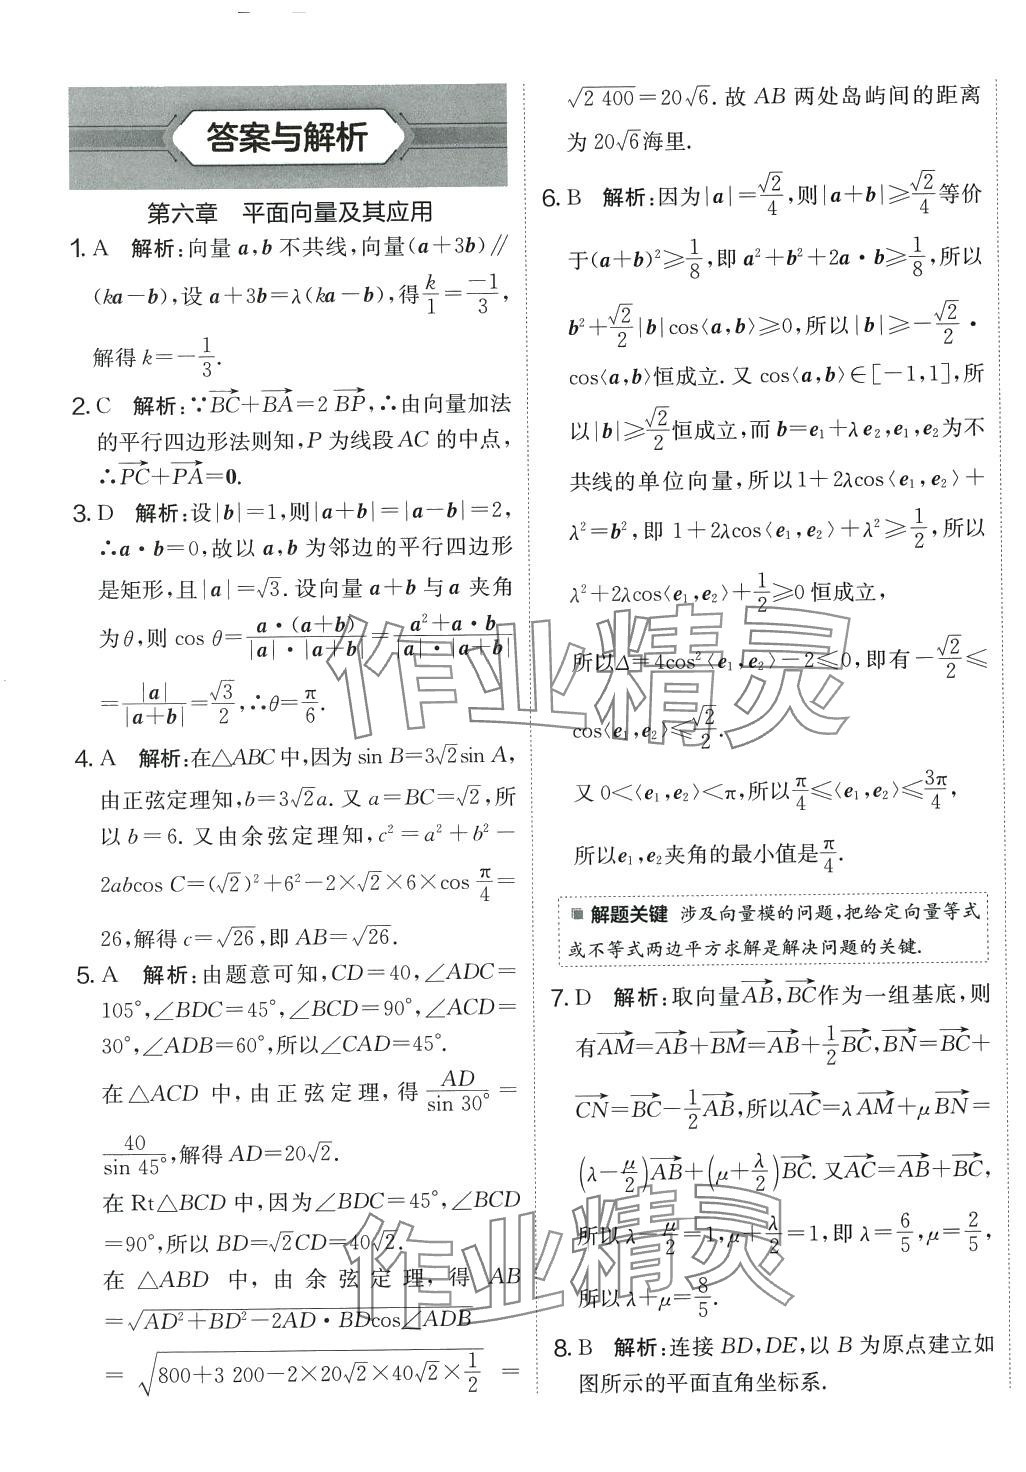 答案与解析
第六章　平面向量及其应用
1. A　解析:向量 a,b 不共线,向量(a+3b)∥
(ka-b),设 a+3b=λ(ka-b),得k/1=-1/3,
解得 k=-1/3.
2. C　解析:∵BC→+BA→=2 BP→,∴由向量加法
的平行四边形法则知,P 为线段 AC 的中点,
∴PC→+PA→=0.
3. D　解析:设|b|=1,则|a+b|=|a-b|=2,
∴a·b=0,故以 a,b 为邻边的平行四边形
是矩形,且|a|=√3.设向量 a+b 与 a 夹角
为θ,则 cos θ=a·(a+b)/|a|·|a+b|=a²+a·b/|a|·|a+b|
=|a|/|a+b|=√3/2,∴θ=π/6.
4. A　解析:在△ABC 中,因为 sin B=3√2sin A,
由正弦定理知,b=3√2a.又 a=BC=√2,所
以 b=6.又由余弦定理知,c²=a²+b²-
2abcos C=(√2)²+6²-2×√2×6×cos π/4=
26,解得 c=√26,即 AB=√26.
5. A　解析:由题意可知,CD=40,∠ADC=
105°,∠BDC=45°,∠BCD=90°,∠ACD=
30°,∠ADB=60°,所以∠CAD=45°.
在△ACD 中,由正弦定理,得 AD/sin 30°=
40/sin 45°,解得 AD=20√2.
在 Rt△BCD 中,因为∠BDC=45°,∠BCD
=90°,所以 BD=√2CD=40√2.
在 △ABD 中,由余弦定理,得 AB
=√(AD²+BD²-2AD·BDcos∠ADB)
=√(800+3 200-2×20√2×40√2×1/2)=
√2 400=20√6.故 AB 两处岛屿间的距离
为 20√6海里.
6. B　解析:因为|a|=√2/4,则|a+b|≥√2/4等价
于(a+b)²≥1/8,即 a²+b²+2a·b≥1/8,所以
b²+√2/2|b|cos⟨a,b⟩≥0,所以|b|≥-√2/2·
cos⟨a,b⟩恒成立.又 cos⟨a,b⟩∈[-1,1],所
以|b|≥√2/2恒成立,而 b=e₁+λe₂,e₁,e₂为不
共线的单位向量,所以1+2λcos⟨e₁,e₂⟩+
λ²=b²,即 1+2λcos⟨e₁,e₂⟩+λ²≥1/2,所以
λ²+2λcos⟨e₁,e₂⟩+1/2≥0 恒成立,
所以Δ=4cos²⟨e₁,e₂⟩-2≤0,即有-√2/2≤
cos⟨e₁,e₂⟩≤√2/2.
又 0<⟨e₁,e₂⟩<π,所以π/4≤⟨e₁,e₂⟩≤3π/4,
所以e₁,e₂夹角的最小值是π/4.
解题关键　涉及向量模的问题,把给定向量等式
或不等式两边平方求解是解决问题的关键.
7. D　解析:取向量AB→,BC→作为一组基底,则
有AM→=AB→+BM→=AB→+1/2BC→,BN→=BC→+
CN→=BC→-1/2AB→,所以AC→=λAM→+μBN→=
(λ-μ/2)AB→+(μ+λ/2)BC→.又AC→=AB→+BC→,
所以 λ-μ/2=1,μ+λ/2=1,即 λ=6/5,μ=2/5,
所以 λ+μ=8/5.
8. B　解析:连接 BD,DE,以 B 为原点建立如
图所示的平面直角坐标系.
作业精灵
作业精灵